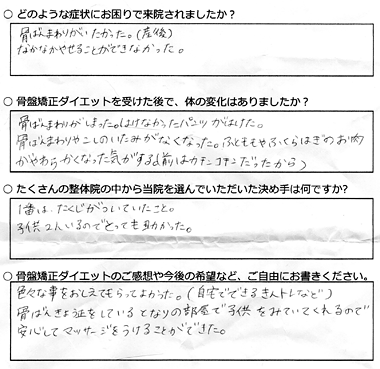 ○ どのような症状にお困りで来院されましたか？
骨ばんまわりがいたかった。(産後)
なかなかやせることができなかった。
○ 骨盤矯正ダイエットを受けた後で、体の変化はありましたか？
骨ばんまわりがしまった。はけなかったパンツがはけた。
骨ばんまわりやこしのいたみがなくなった。ふとももやふくらはぎのお肉
がやわらかくなった気がする(前はカチンコチンだったから)
○ たくさんの整体院の中から当院を選んでいただいた決め手は何ですか?
1番は、たくじがついていたこと。
子供2人いるのでとっても助かった。
○ 骨盤矯正ダイエットのご感想や今後の希望など、ご自由にお書きください。
色々な事をおしえてもらってよかった。(自宅でできるきんトレなど)
骨ばんきょう正をしているとなりの部屋で子供をみていてくれるので
安心してマッサージをうけることができた。